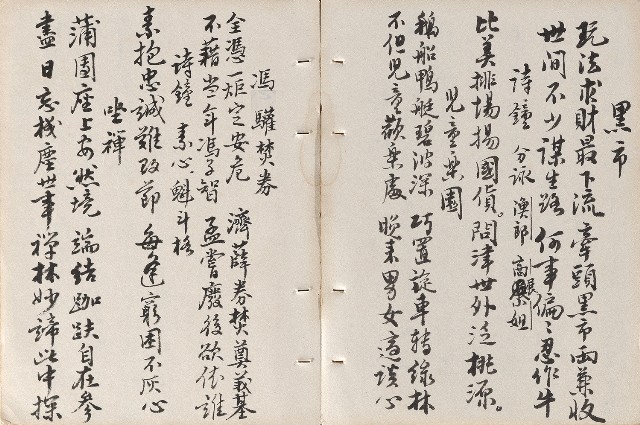 黑市
玩法求財最下流 牽頭黑市兩兼收
世间不少謀生路 何事偏々忍作牛
詩鐘 分詠 漁郎 高 展 姐
比美排場揚國貨。問津世外泛桃源。
児童樂園
鵝船鴨艇碧波深 巧置旋車轉綠林
不但児童歡樂處 晚来男女這談心
馮驩焚券
全憑一炬定安危 濟薛券焚奠義基
不藉當年馮子智 孟嘗廢後欲依誰
詩鐘 素心 魁斗格
素抱忠誠難改節 每逢窮困不灰心
坐禪
蒲團座上安然境 端結跏趺自在參
盡日忘機塵世事 禅林妙諦此中探